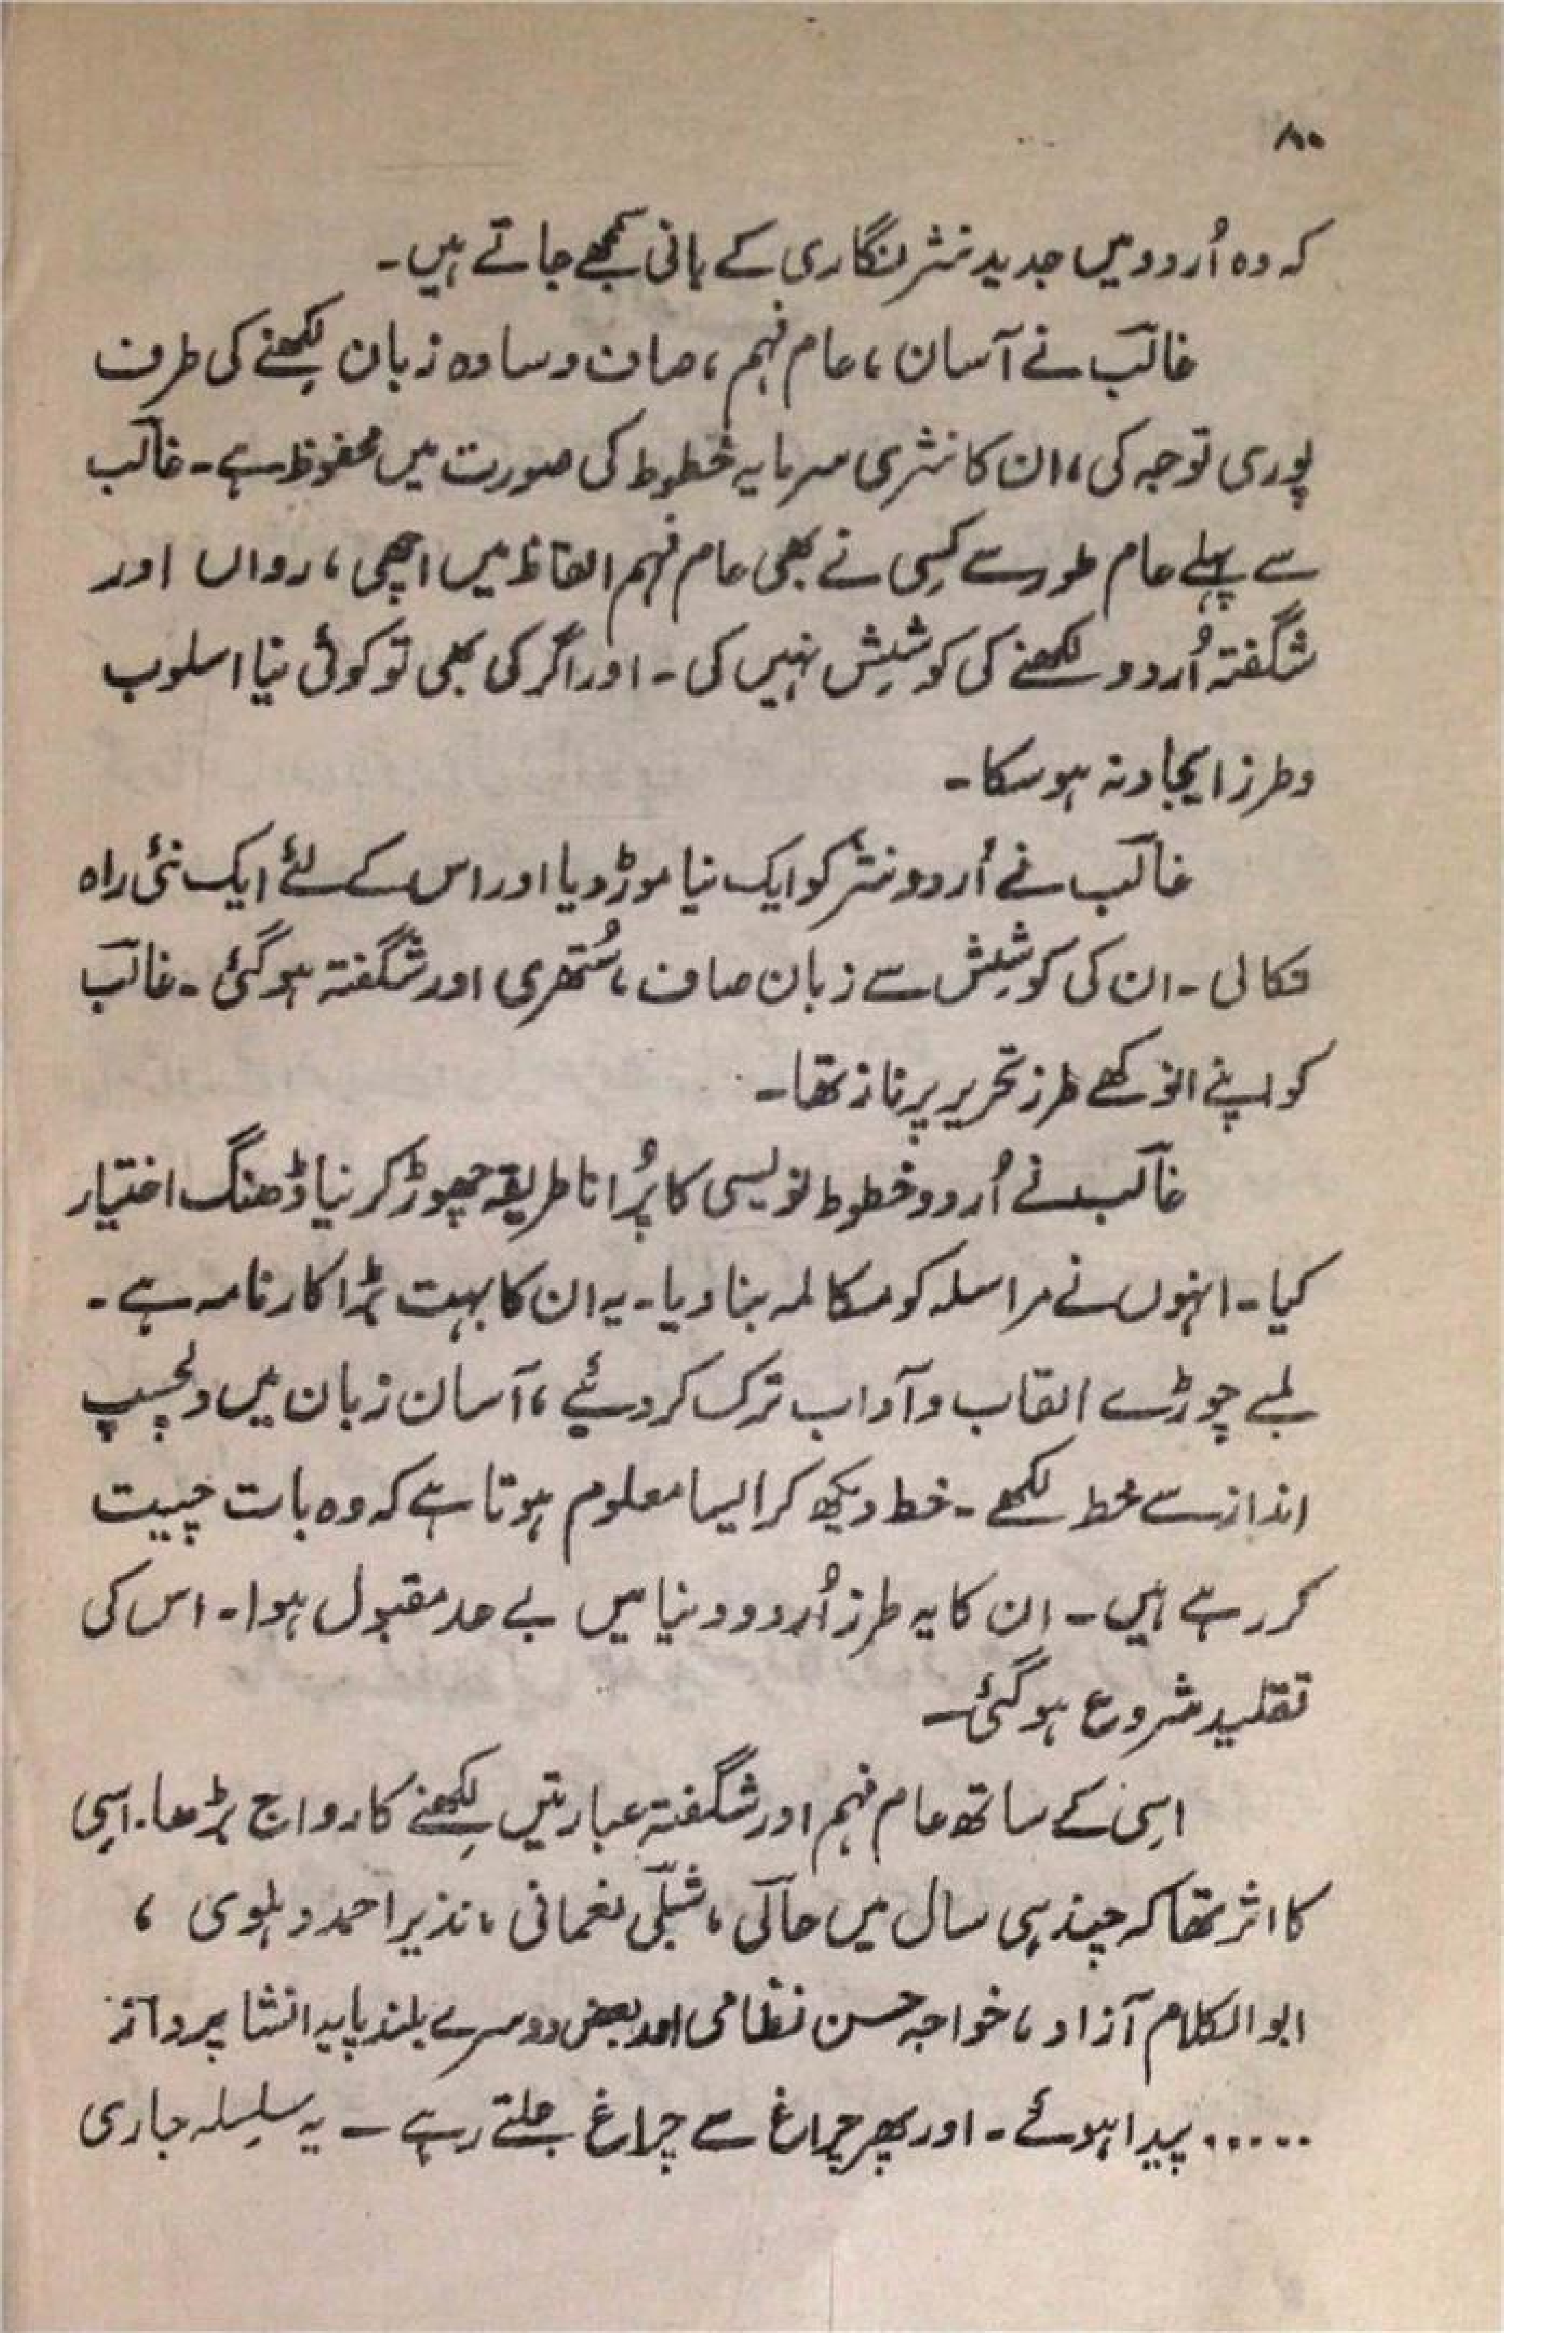 ۸۰
کہ وہ اُردو میں جدید نثر نگاری کے بانی سمجھے جاتے ہیں۔
غالبؔ نے آسان، عام فہم، صاف و سادہ زبان لِکھنے کی طرف
پوری توجہ کی، ان کا نثری سرمایہ خطوط کی صورت میں محفوظ ہے۔ غالبؔ
سے پہلے عام طور سے کِسی نے بھی عام فہم الفاظ میں اچھی، رواں اور
شگفتہ اُردو لکھنے کی کوشِش نہیں کی۔ اور اگر کی بھی تو کوئی نیا اسلوب
و طرز ایجاد نہ ہو سکا۔
غالبؔ نے اُردو نثر کو ایک نیا موڑ دیا اور اس کے لئے ایک نئی راہ
نکالی۔ ان کی کوشِش سے زبان صاف، سُتھری اور شگفتہ ہو گئی۔ غالبؔ
کو اپنے انوکھے طرز تحریر پر ناز تھا۔
غالبؔ نے اُردو خطوط نویسی کا پُرانا طریقہ چھوڑ کر نیا ڈھنگ اختیار
کیا۔ انہوں نے مراسلہ کو مکالمہ بنا دیا۔ یہ ان کا بہت بڑا کارنامہ ہے۔
لمبے چوڑے القاب و آداب ترک کر دئیے، آسان زبان میں دلچسپ
انداز سے خط لکھے۔ خط دیکھ کر ایسا معلوم ہوتا ہے کہ وہ بات چیت
کر رہے ہیں۔ ان کا یہ طرز اُردو دنیا میں بے حد مقبول ہوا۔ اس کی
تقلید شروع ہو گئی۔
اسِی کے ساتھ عام فہم اور شگفتہ عبارتیں لِکھنے کا رواج بڑھا۔ اسِی
کا اثر تھا کہ چند ہی سال میں حالؔی، شبلؔی نعمانی، نذیر احمد دہلوی ،
ابوالکلام آزاد، خواجہ حسن نظامی اور بعض دوسرے بلند پایہ انشا پرداز
..... پیدا ہوئے۔ اور پھر چراغ سے چراغ جلتے رہے۔ یہ سلِسِلہ جاری